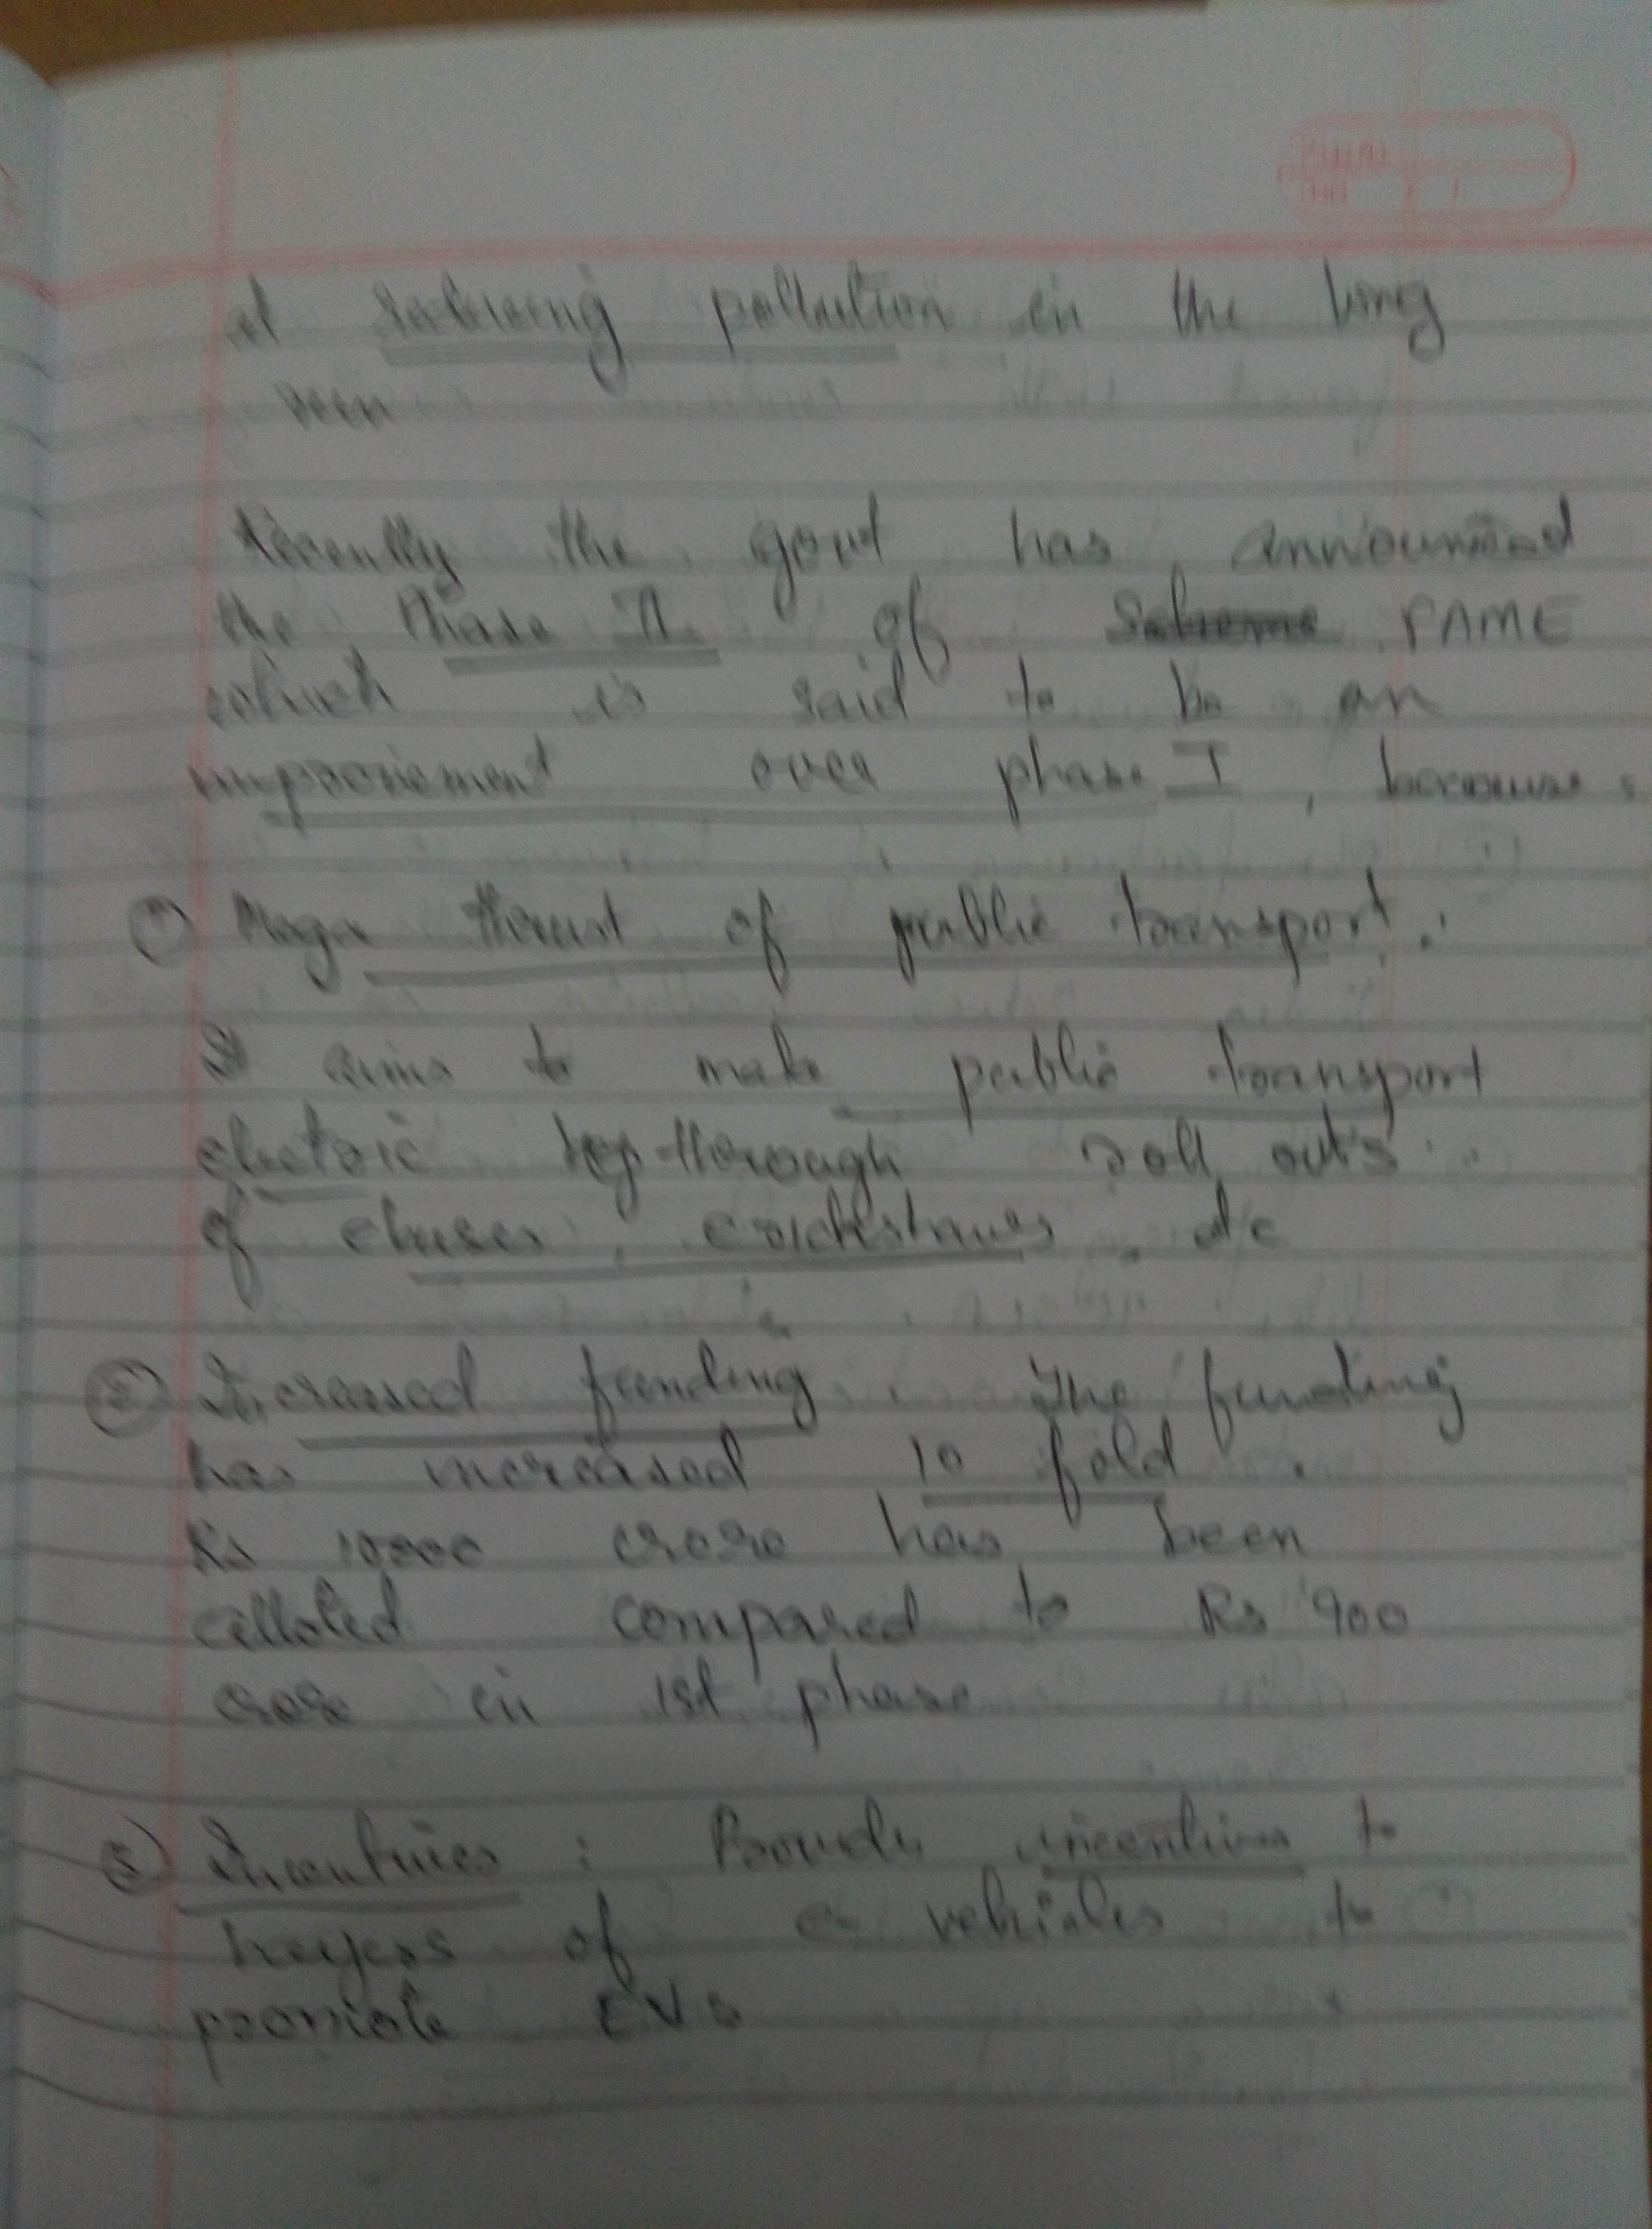 at reducing pollution in the long
run
Recently the govt has announced
the Phase II of Scheme FAME
which is said to be an
improvement over phase I, because :
① Mega thrust of public transport :
It aims to make public transport
electric through roll outs
of ebuses, erickshaws, etc
② Increased funding : The funding
has increased 10 fold.
Rs 10000 crore has been
alloted compared to Rs 900
crore in 1st phase
③ Incentives : Provide incentives to
buyers of e-vehicles to
promote EVs